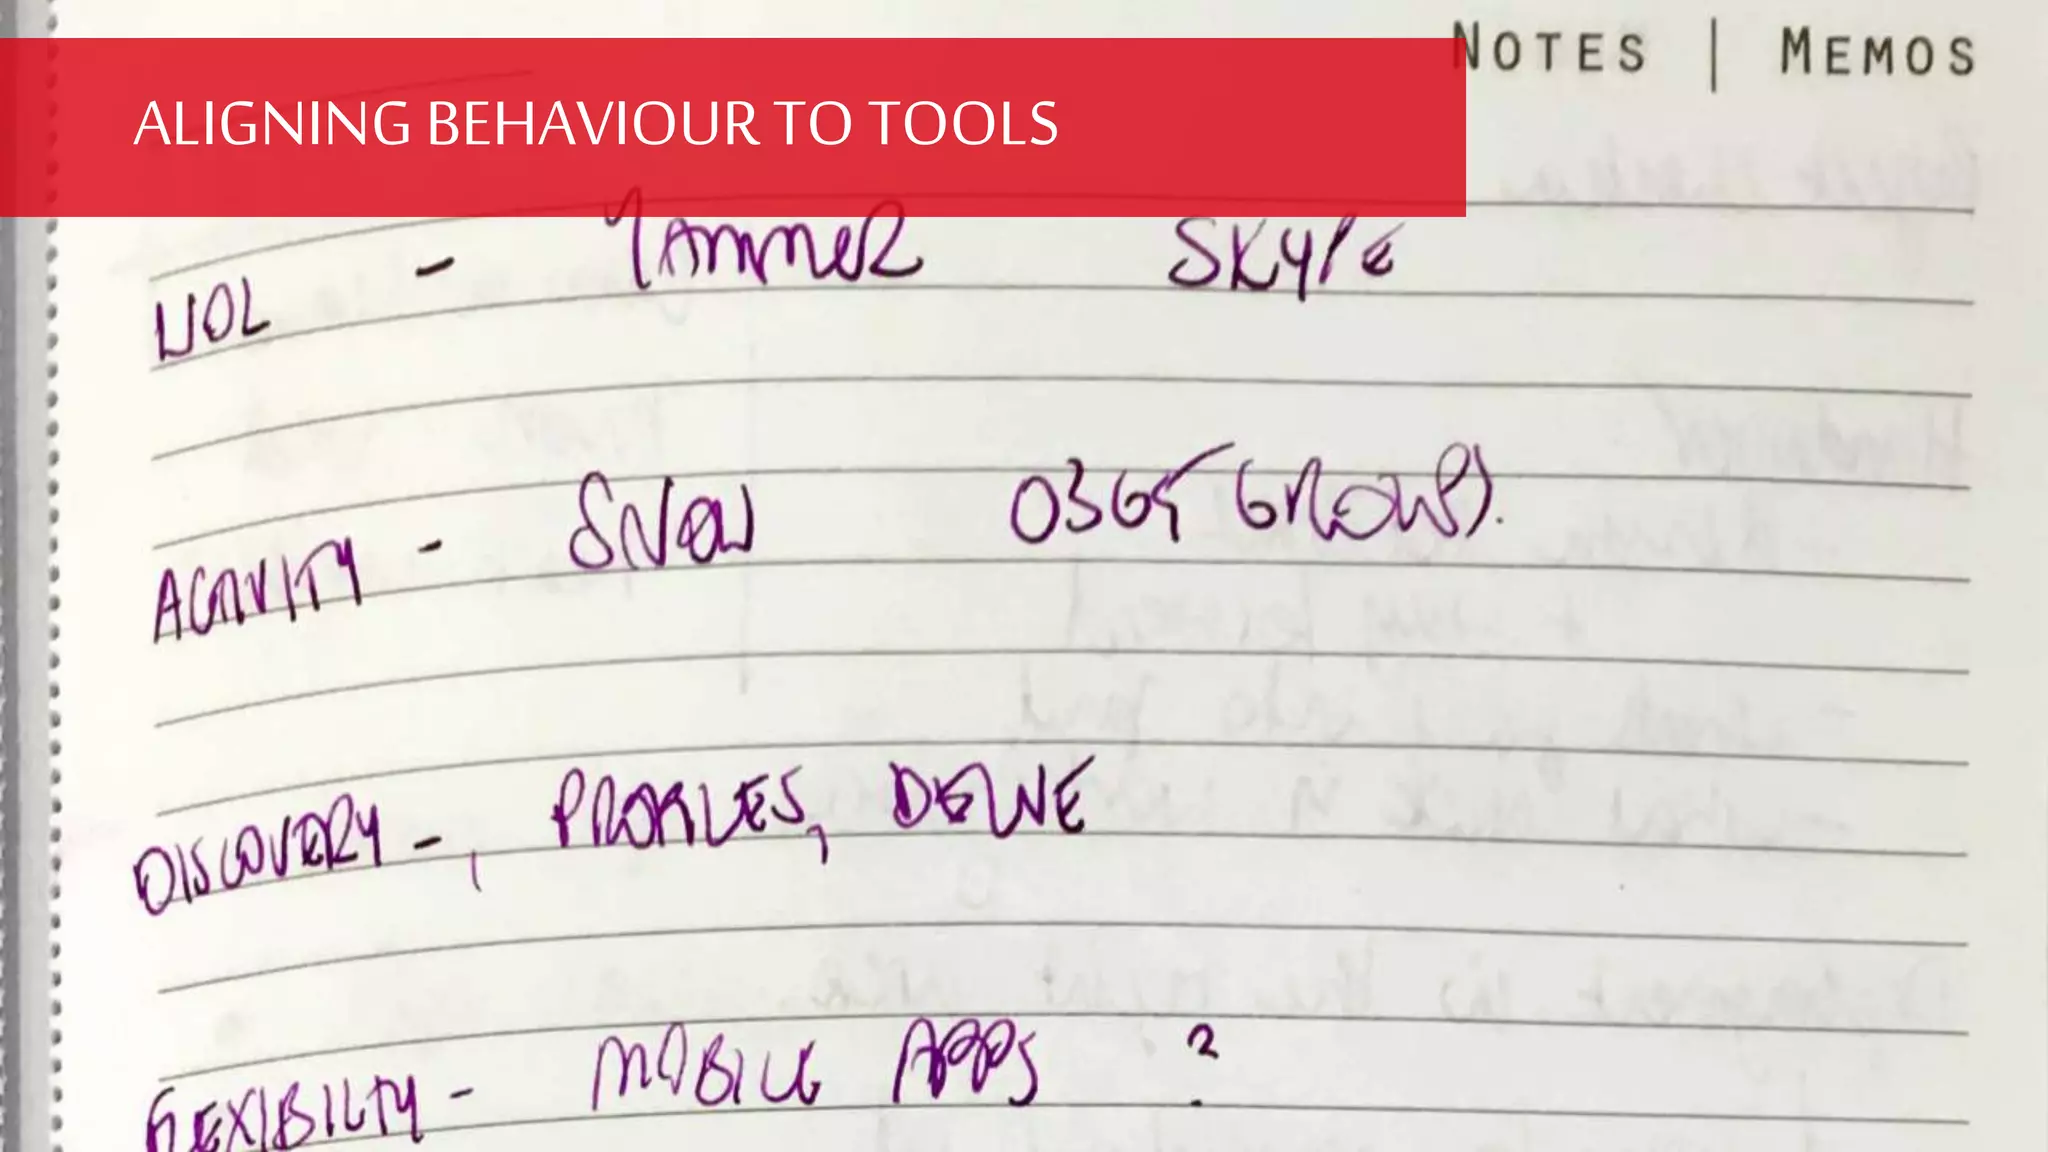 NOTES | MEMOS
ALIGNING BEHAVIOUR TO TOOLS
WOL - YAMMER SKYPE
ACTIVITY - SNOW O365 GROUPS.
DISCOVERY - , PROFILES, DELVE
FLEXIBILTY - MOBILE APPS ?